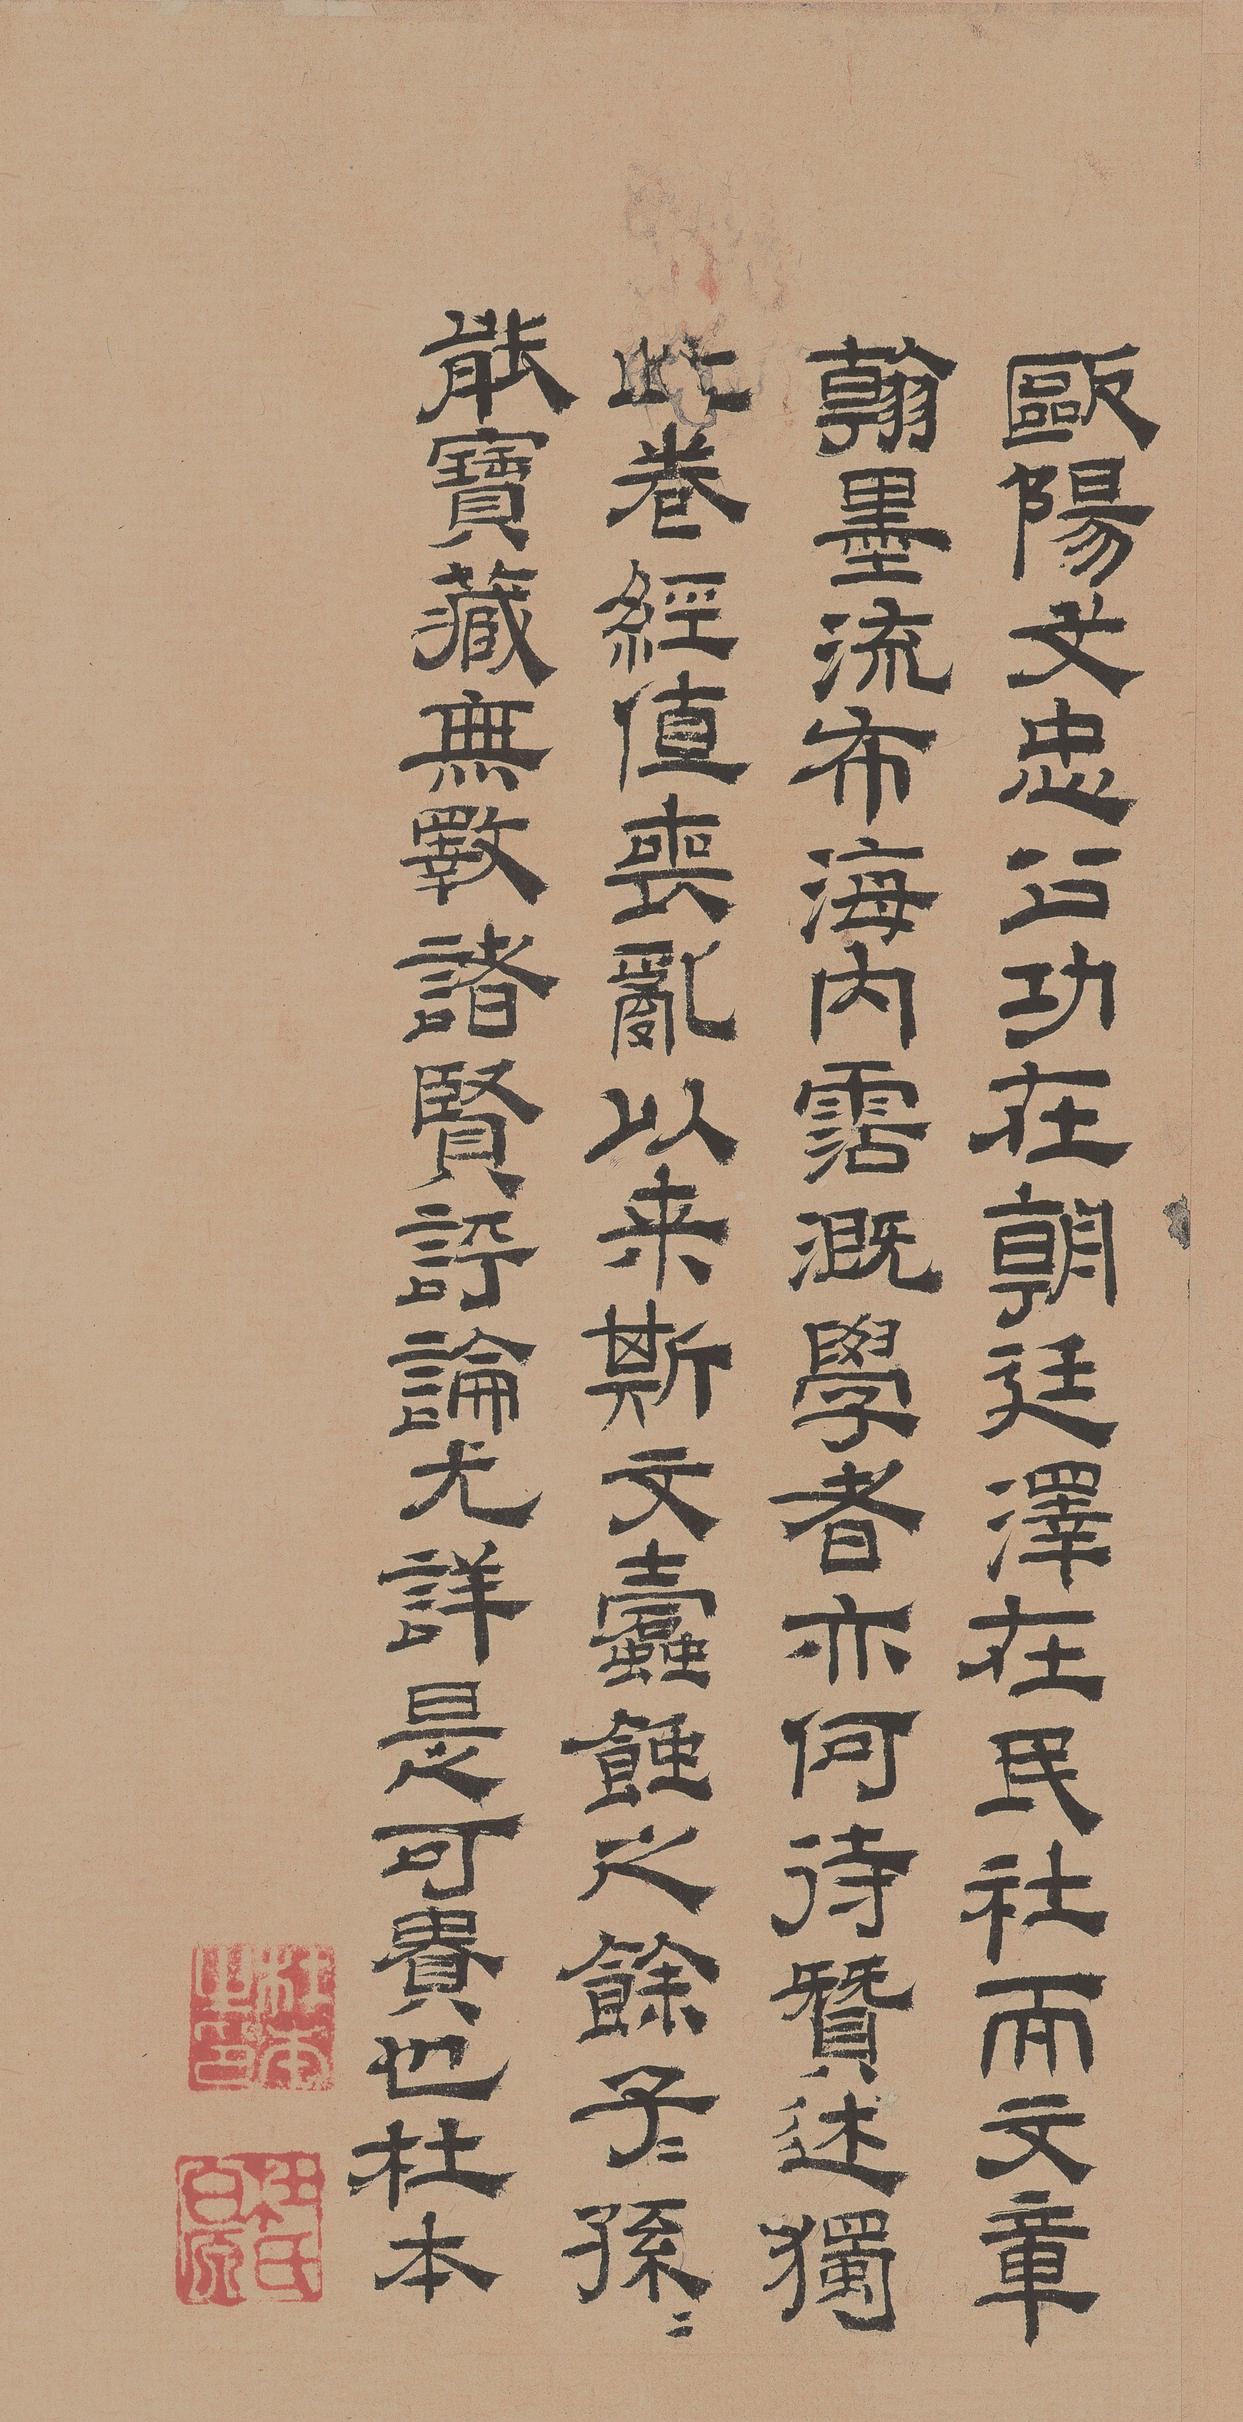 歐陽文忠公功在朝廷澤在民社而文章
翰墨流布海内霑溉學者亦何待贊述獨
此卷經值喪亂以来斯文蠹蝕之餘子〻孫〻
能寶藏無斁諸賢評論尤詳是可貴也杜本
杜本之印